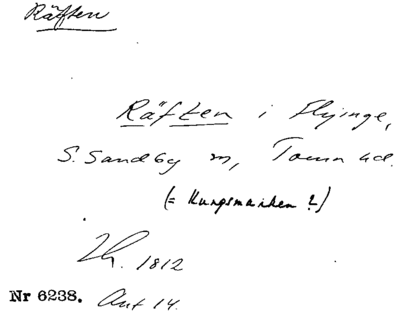 Räften
Räften i Flyinge,
S. Sandby sn, Torna hd.
(= Kungsmarken ?)
1812
Nr 6238. Ant 14.